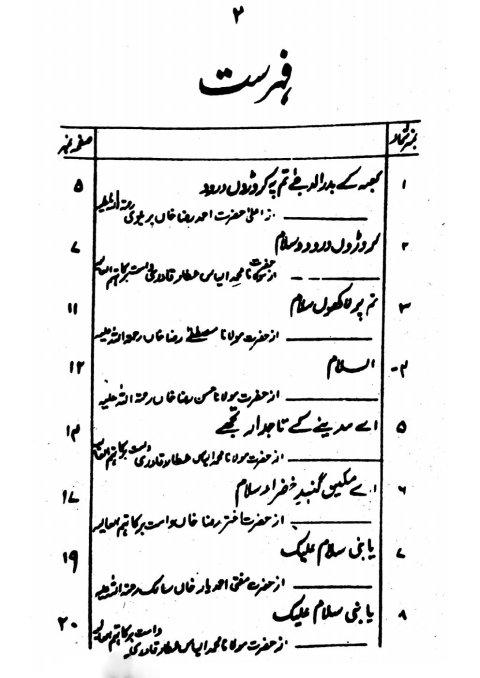 ۲
فہرست
نمبر شمار صفحہ نمبر
۱ کعبہ کے بدرالدجیٰ تم پہ کروڑوں درود ۵
از اعلیٰ حضرت احمد رضا خاں بریلوی رحمۃ اللہ علیہ
۲ کروڑوں درود و سلام ۷
از حضرت مولانا محمد الیاس عطار قادری دامت برکاتہم العالیہ
۳ تم پر لاکھوں سلام ۱۱
از حضرت مولانا مصطفےٰ رضا خاں رحمۃ اللہ علیہ
۴ السلام ۱۲
از حضرت مولانا حسن رضا خاں رحمۃ اللہ علیہ
۵ اے مدینے کے تاجدار تجھے ۱۴
از حضرت مولانا محمد الیاس عطار قادری دامت برکاتہم العالیہ
۶ اے مکین گنبد خضرا سلام ۱۷
از حضرت اختر رضا خاں دامت برکاتہم العالیہ
۷ یا نبی سلام علیک ۱۹
از حضرت مفتی احمد یار خاں سالک رحمۃ اللہ علیہ
۸ یا نبی سلام علیک ۲۰
از حضرت مولانا محمد الیاس عطار قادری دامت برکاتہم العالیہ